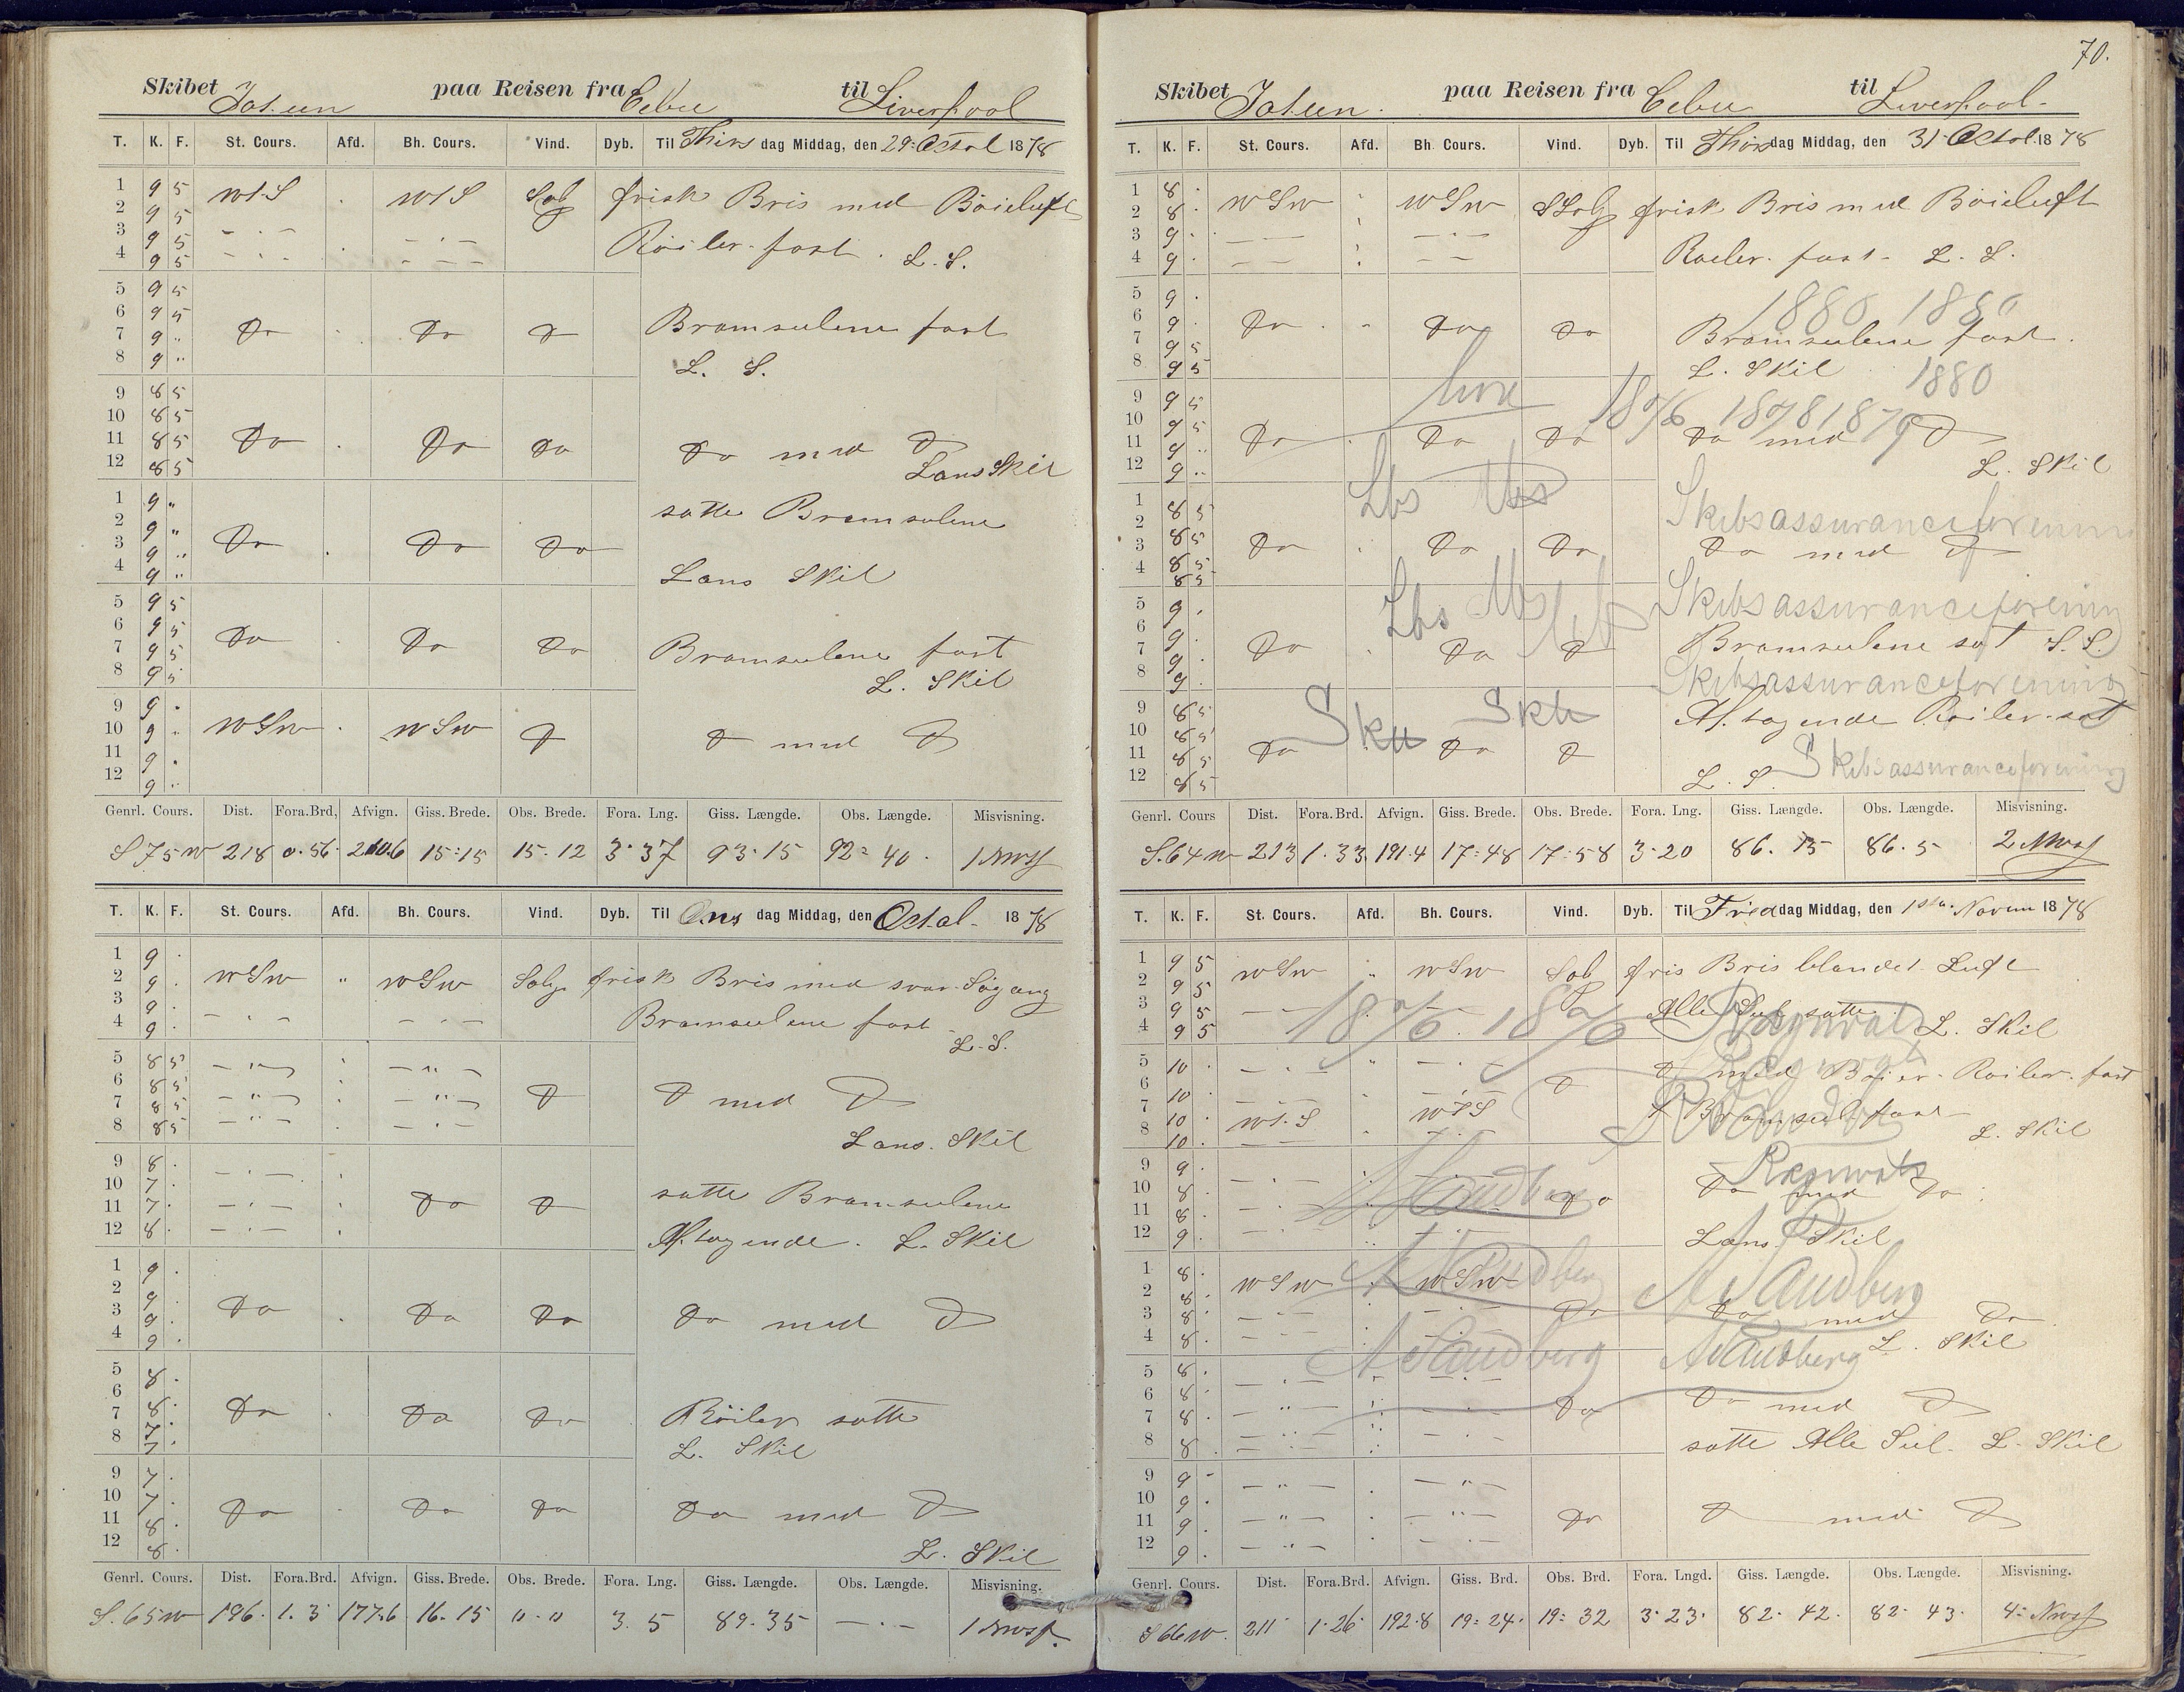 Skibet Jotun paa Reisen fra Cebu til Liverpool
T. K. F. St. Cours. Afd. Bh. Cours. Vind. Dyb. Til Thirs dag Middag, den 29: Octol 1878
1 9 5 wtS . wtS frisk Bris med Böieluft
2 9 5
3 9 5 - · -  - · -
4 9 5 - · -  - · - Röiler fast. L. S.
5 9 5
6 9 5 Bramseilene fast
7 9 " Do . Do Do
8 9 " L. S.
9 8 5
10 8 5
11 8 5 Do . Do Do Do med Do
12 8 5 Lars Skil
1 9 " satte Bramseilene
2 9 "
3 9 " Do . Do Do
4 9 " Lars Skil
5 9 5
6 9 5 Do . Do Do
7 9 5 Bramseilene fast
8 9 5 L. Skil
9 9 "
10 9 " wSw . wSw Do Do med Do
11 9 "
12 9 "
Genrl. Cours. Dist. Fora.Brd. Afvign. Giss. Brede. Obs. Brede. Fora. Lng. Giss. Længde. Obs. Længde. Misvisning.
S 75 w 218 0.56 210.6 15:15 15:12 3.37 93.15 92:40
T. K. F. St. Cours. Afd. Bh. Cours. Vind. Dyb. Til Ons dag Middag, den Octol 1878
1 9 .
2 9 . wSw " wSw frisk Bris med svær Søgang
3 9 . - · -  - · -
4 9 . Bramseilene fast L. S.
5 8 5 - " -  - " -
6 8 5 Do Do med Do
7 8 5 - " -  - " -
8 8 5 - " -  - · - Lars. Skil
9 8 . - · -
10 7 . Do Do satte Bramseilene
11 7 . - · -
12 8 . - · - Aftagende. L. Skil
1 9 .
2 9 .
3 9 . Do . Do Do Do med Do
4 9 .
5 8 .
6 8 . Do . Do Do Röiler satte
7 7 .
8 7 . L. Skil
9 7 .
10 7 .
11 8 . Do . Do Do Do med Do
12 8 . L. Skil
Genrl. Cours. Dist. Fora.Brd. Afvign. Giss. Brede. Obs. Brede. Fora. Lng. Giss. Længde. Obs. Længde. Misvisning.
S. 65 w 196. 1.3 177.6 16.15 "." 3.5 89.35 - · -
70.
Skibet Jotun. paa Reisen fra Cebu til Liverpool.
T. K. F. St. Cours. Afd. Bh. Cours. Vind. Dyb. Til Thors dag Middag, den 31. Octol. 1878
1 8 . wSw . wSw frisk Bris med Böieluft
2 8 .
3 9 . - -  - · -
4 9 . - -  - - Roeler. fast. L. S.
5 9 . 1880 1880
6 9 . Do . Do Do Bramseilene fast.
7 9 5
8 9 5 L. Skil 1880
9 9 5 18%6 1878 1879
10 9 5
11 9 " Do . Do Do Do med Do
12 9 " L. Skil
Lbs
1 8 5 Skibsassuranceforening
2 8 5
3 8 5 Do . Do Do Do med Do
4 8 5
Lbs Mbs
5 9 . Skibsassuranceforening
6 9 .
7 9 . Do . Do Do Bramseilene sat S. S.
8 9 . Skibsassuranceforening
9 8 5 Aftagende Röiler sat
10 8 5 Sku Skb
11 8 5 Do . Do Do
12 8 5 L. S. Skibsassuranceforening
Genrl. Cours Dist. Fora.Brd. Afvign. Giss. Brede. Obs. Brede. Fora. Lng. Giss. Længde. Obs. Længde. Misvisning.
S. 64 w 213 1.33 191.4 17:48 17:58 3.20 86.15 86.5
T. K. F. St. Cours. Afd. Bh. Cours. Vind. Dyb. Til Fred dag Middag, den 1ste Novem 1878
1 9 5 wSw " wSw fris Bris blandet Luft
2 9 5
3 9 5 Alle Seil satte
4 9 5 18%6. 18%6 Ragnvald L. Skil
5 10 . - · -  - · - Do med Böier. Roiler. fast
6 10 . Do
7 10 . wt.S . wtS Bramseil fast
8 10 . L. Skil
9 9 . - · - Ragnvald
10 8 . A Sandberg Do Do med Do
11 8 . - · -
12 9 . Lars Skil
1 8 . wSw . wSw A Sandberg A Sandberg
2 8 .
3 8 . Do Do med Do
4 8 . L. Skil
5 8 . A Sandberg A Sandberg
6 8 . - · -
7 8 . Do Do med Do
8 8 . satte Alle Seil. L. Skil
9 9 - - " -  - " -
10 9 .
11 9 . - " -  - " - Do Do med Do
12 9 . - " -  - " -
Genrl. Cours. Dist. Fora.Brd. Afvign. Giss. Brd. Obs. Brd. Fora. Lngd. Giss. Længde. Obs. Længde. Misvisning.
S 66 w. 211 1.26 192.8 19:24. 19:32 3.23. 82.42. 82.43.